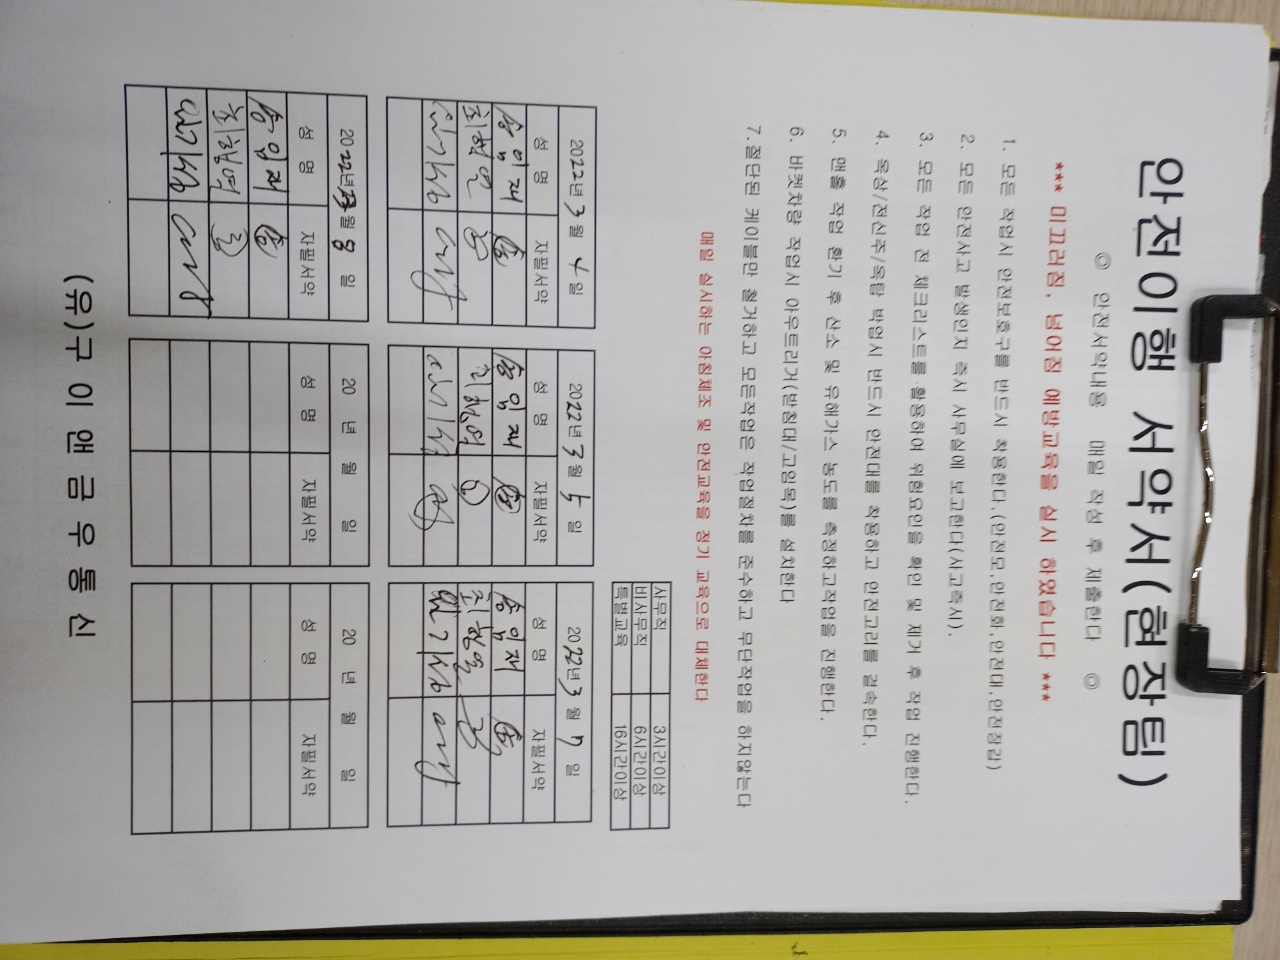 안전이행 서약서(현장팀)
◎ 안전서약내용 매일 작성 후 제출한다 ◎
*** 미끄러짐, 넘어짐 예방교육을 실시 하였습니다 ***
1. 모든 작업시 안전보호구를 반드시 착용한다.(안전모,안전화,안전대,안전장갑)
2. 모든 안전사고 발생인지 즉시 사무실에 보고한다(사고즉시).
3. 모든 작업 전 체크리스트를 활용하여 위험요인을 확인 및 제거 후 작업 진행한다.
4. 옥상/전신주/옥탑 작업시 반드시 안전대를 착용하고 안전고리를 결속한다.
5. 맨홀 작업 환기 후 산소 및 유해가스 농도를 측정하고작업을 진행한다.
6. 바켓차량 작업시 아우트리거(받침대/고임목)를 설치한다
7.절단된 케이블만 철거하고 모든작업은 작업절차를 준수하고 무단작업을 하지않는다
매일 실시하는 아침체조 및 안전교육을 정기 교육으로 대체한다
사무직 3시간이상
비사무직 6시간이상
특별교육 16시간이상
2022년 3월 4일 2022년 3월 5일 2022년 3월 7일
성 명 자필서약 성 명 자필서약 성 명 자필서약
2022년 3월 8일 20 년 월 일 20 년 월 일
성 명 자필서약 성 명 자필서약 성 명 자필서약
(유)구이앤금우통신